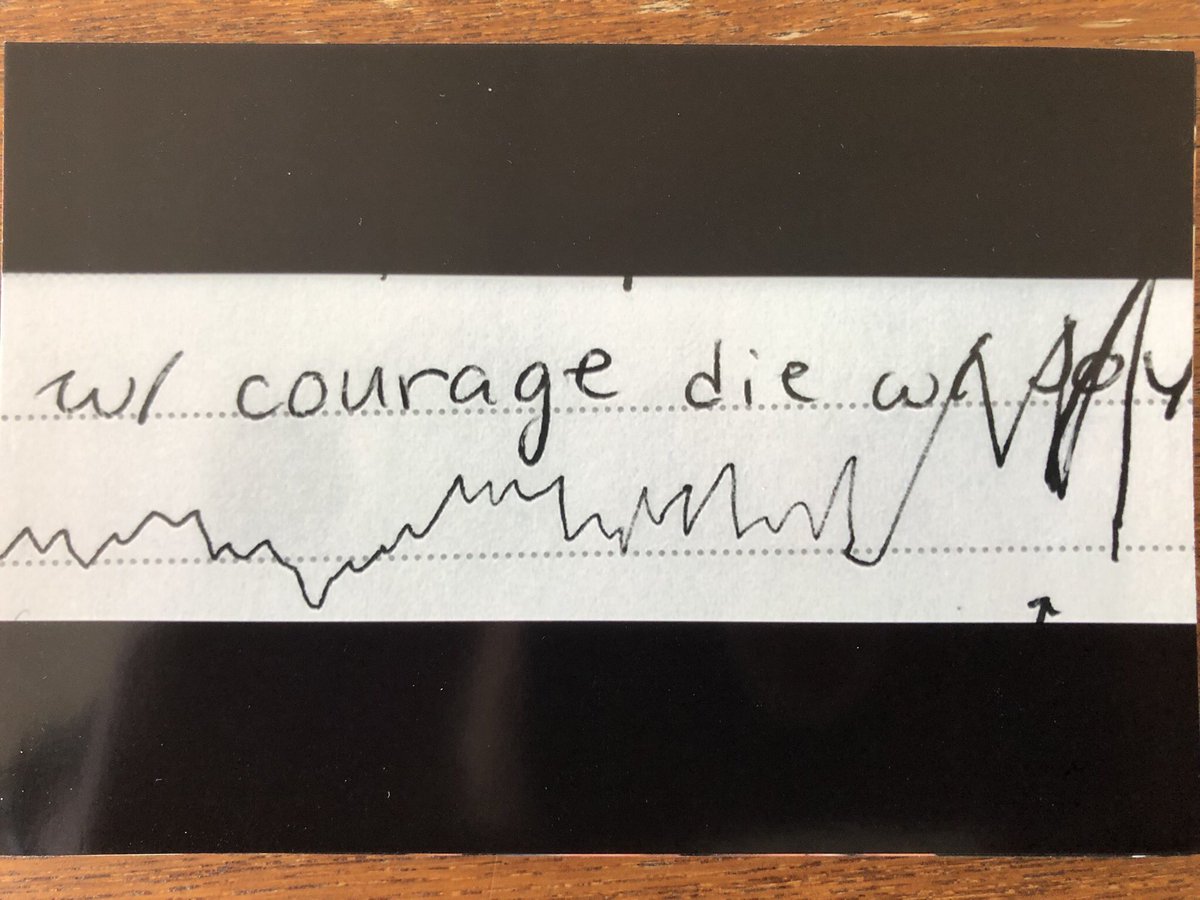 w/ courage die w/